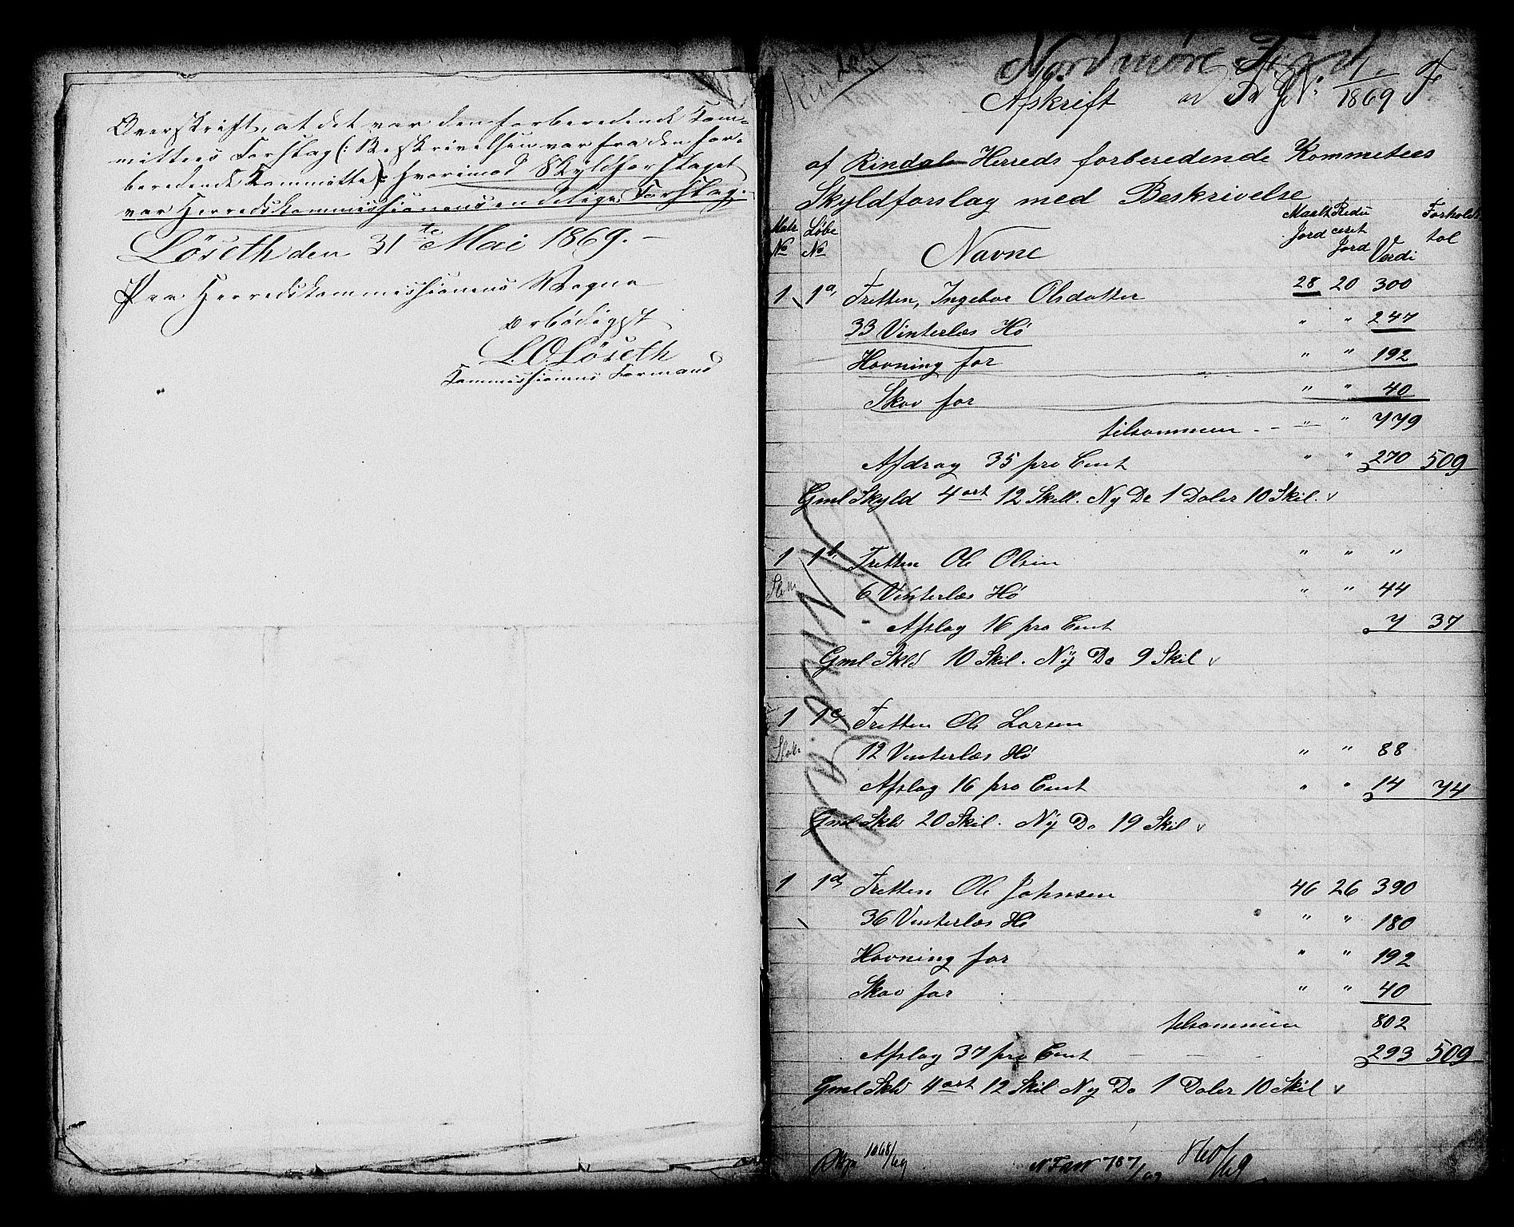 Overskrift, at det var den forberedende Com-
mittees Forslag (: Beskrivelsen var fra den for-
beredende Committe :) hvorimod Skyldforslaget
var Herredskommissionens endelige Forslag.
Løseth den 31te Mai 1869. —
Paa Herredskommissionens Vegne
Ærbødigst
L. O. Løseth
Kommissionens Formand
Nordmøre Fogd
Afskrift
1869
af Rindals Herreds forberedende Kommitees
Skyldforslag med Beskrivelse
Matr No Løbe No Navne Maalt Jord Redu ceret Jord Verdi Forholds tal
1 1a, Tretten, Ingebor Olsdatter 28 20 300
33 Vinterlæs Hø " " 247
Havning for " " 192
Skov for " " 40
tilsammen - " " 779
Afdrag 35 pro Cent " " 270 509
Gml Skyld 4 ort 12 Skill. Ny Do 1 Daler 10 Skil.
1 1b, Tretten Ole Olsen " " "
6 Vinterlæs Hø " " 44
Afslag 16 pro Cent 7 37
Gml Skld 10 Skil. Ny Do 9 Skil
1 1c, Tretten Ole Larsen
12 Vinterlæs Hø " " 88
Afslag 16 pro Cent " " 14 74
Gml Skld 20 Skil. Ny Do 19 Skil
1 1d, Tretten Ole Johnsen 46 26 390
36 Vinterlæs Hø " " 180
Havning for " " 192
Skov for " " 40
tilsammen 802
Afslag 37 pro Cent 293 509
Gml Skld 4 ort 12 Skil Ny Do 1 Daler 10 Skil
Rindal
1068/69 767/69 860/69